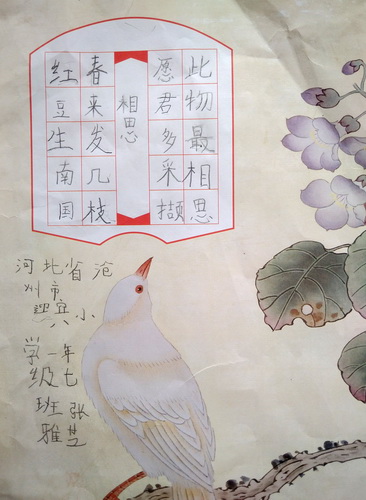 红豆生南国
春来发几枝
相思
愿君多采撷
此物最相思
河北省沧
州市
迎宾小
学一年
级七
班张
雅芝